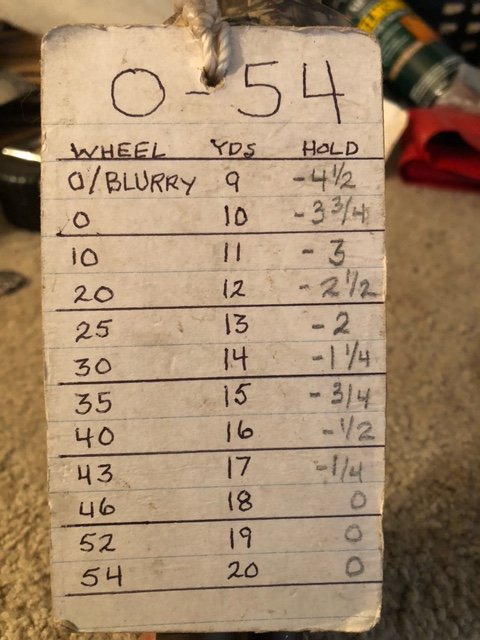 0-54
WHEEL YDS HOLD
0/BLURRY 9 -4 1/2
0 10 -3 3/4
10 11 -3
20 12 -2 1/2
25 13 -2
30 14 -1 1/4
35 15 -3/4
40 16 -1/2
43 17 -1/4
46 18 0
52 19 0
54 20 0